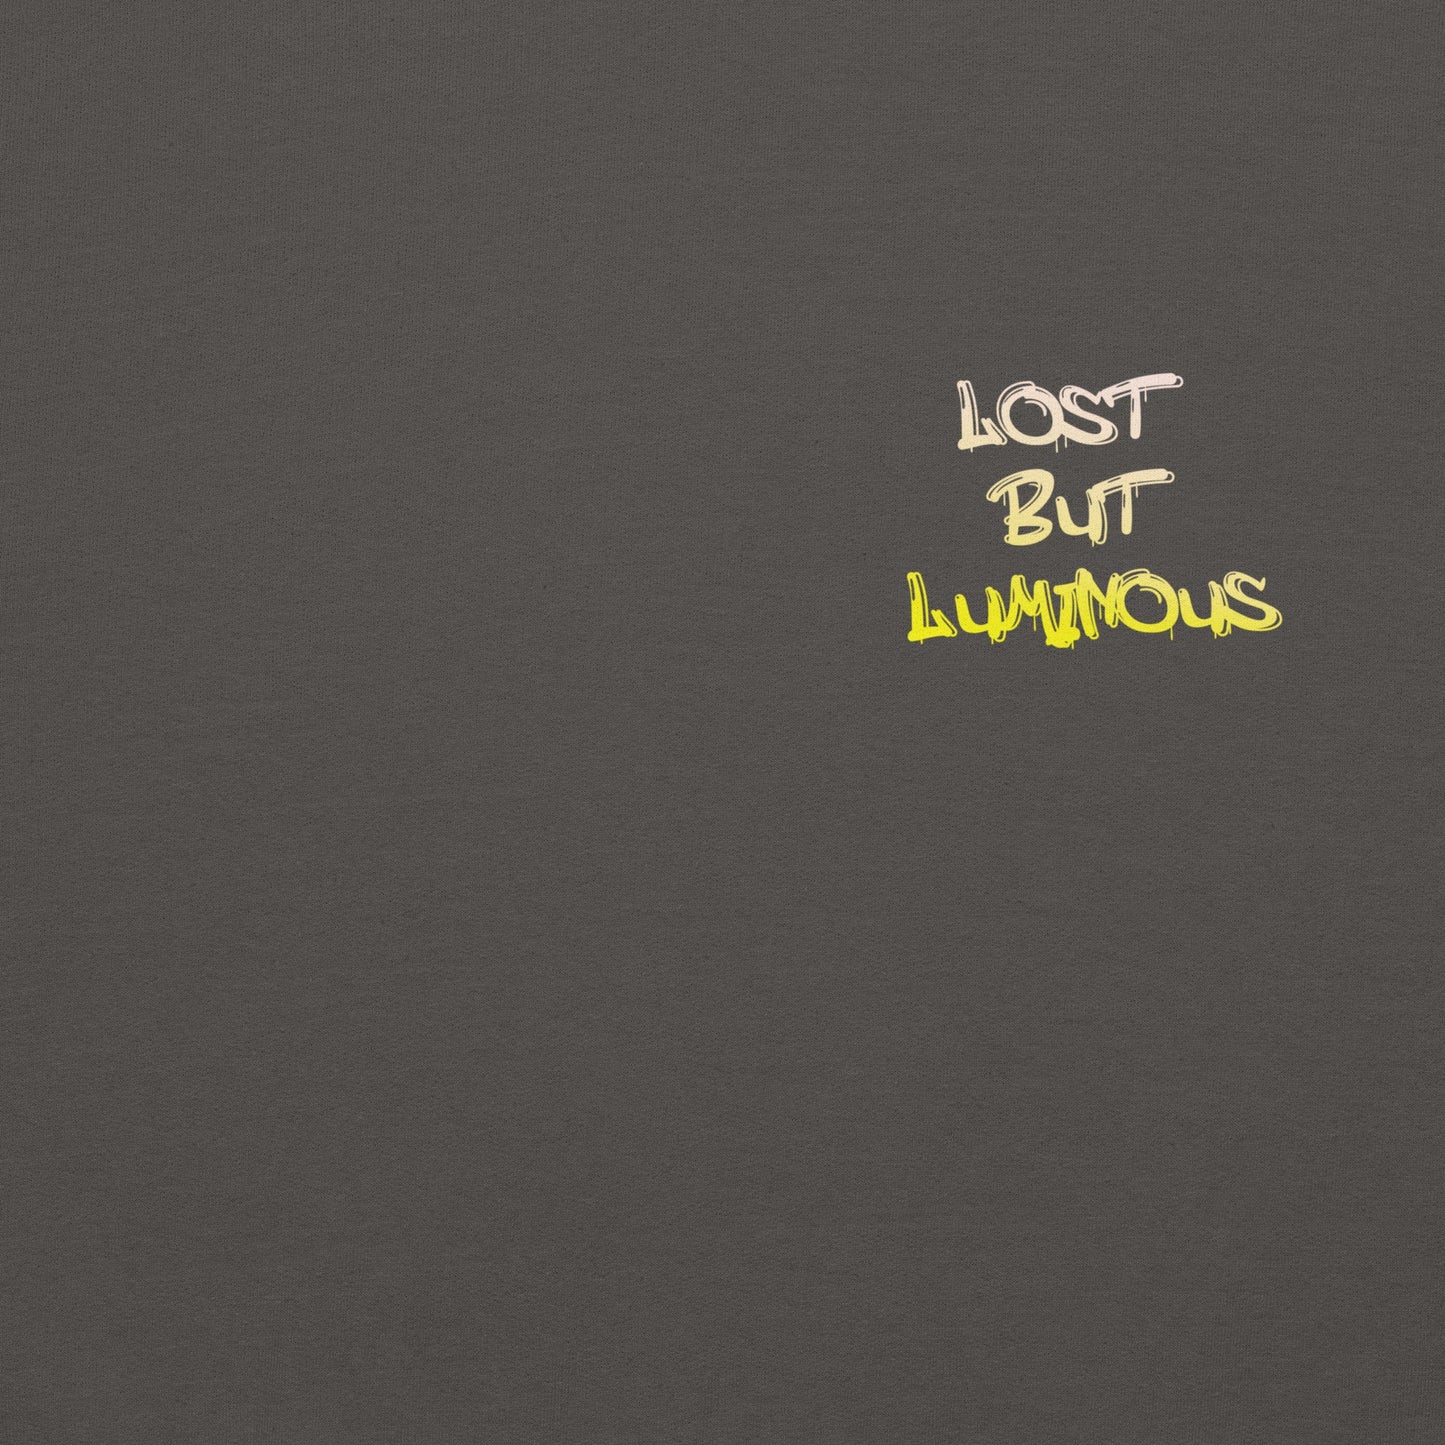 LOST
BUT
LUMINOUS